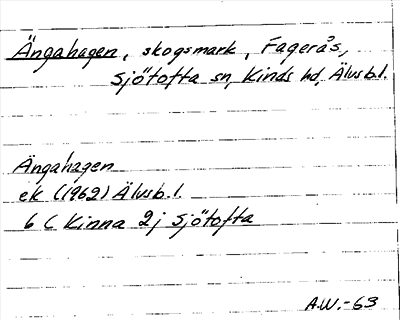 Ängahagen, skogsmark, Fagerås,
Sjötofta sn, Kinds hd, Älvsb.l.
Ängahagen
ek (1962) Älvsb.l.
6 C Kinna 2j Sjötofta
A.W.-63